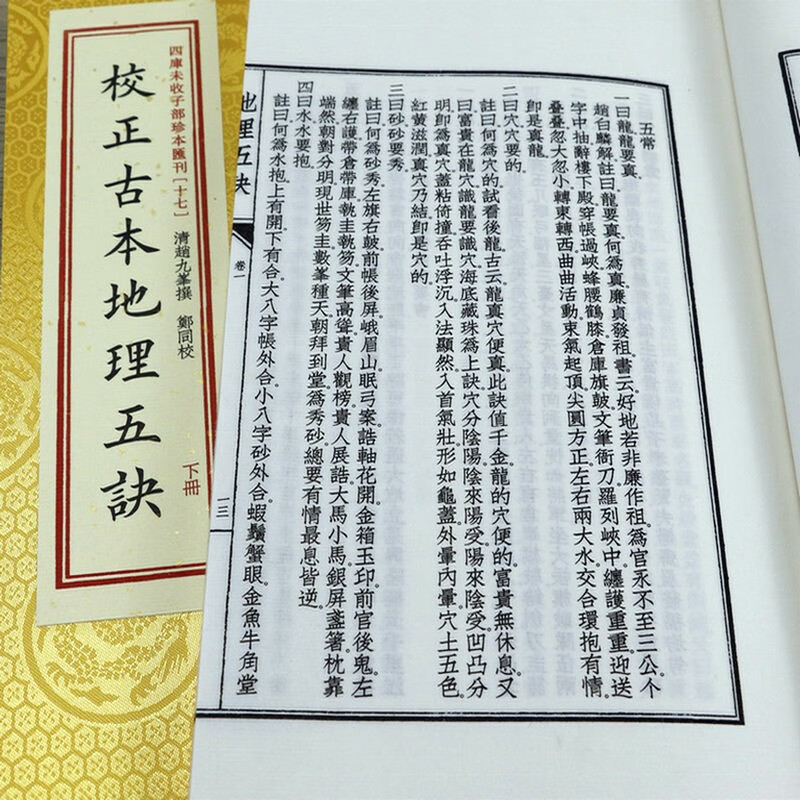 四庫未收子部珍本匯刊〔十七〕
清趙九峯撰 鄭同校
校正古本地理五訣
下冊
五常
一曰龍龍要真
趙白麟解註曰龍要真何爲真廉貞發祖書云好地若非廉作祖爲官永不至三公个
字中抽辭樓下殿穿帳過峽蜂腰鶴膝倉庫旗皷文筆衙刀羅列峽中纏護重重迎送
疊疊忽大忽小轉東轉西曲曲活動束氣起頂尖圓方正左右兩大水交合環抱有情
卽是真龍
二曰穴穴要的
註曰何爲穴的試看後龍古云龍真穴便真此訣值千金龍的穴便的富貴無休息又
曰富貴在龍穴識龍要識穴海底藏珠爲上訣穴分陰陽陰來陽受陽來陰受凹凸分
明卽爲真穴蓋粘倚撞吞吐浮沉入法顯然入首氣壯形如龜蓋外暈內暈穴土五色
紅黃滋潤真穴乃結卽是穴的
三曰砂砂要秀
註曰何爲砂秀左旗右皷前帳後屏峨眉山眠弓案誥軸花開金箱玉印前官後鬼左
纏右護帶倉帶庫執圭執笏文筆高聳貴人觀榜貴人展誥大馬小馬銀屏盞箸枕靠
端然朝對分明現世笏圭數峯種天朝拜到堂爲秀砂總要有情最忌皆逆
四曰水水要抱
註曰何爲水抱上有開下有合大八字帳外合小八字砂外合蝦鬚蟹眼金魚牛角堂
地理五訣
卷一
一三